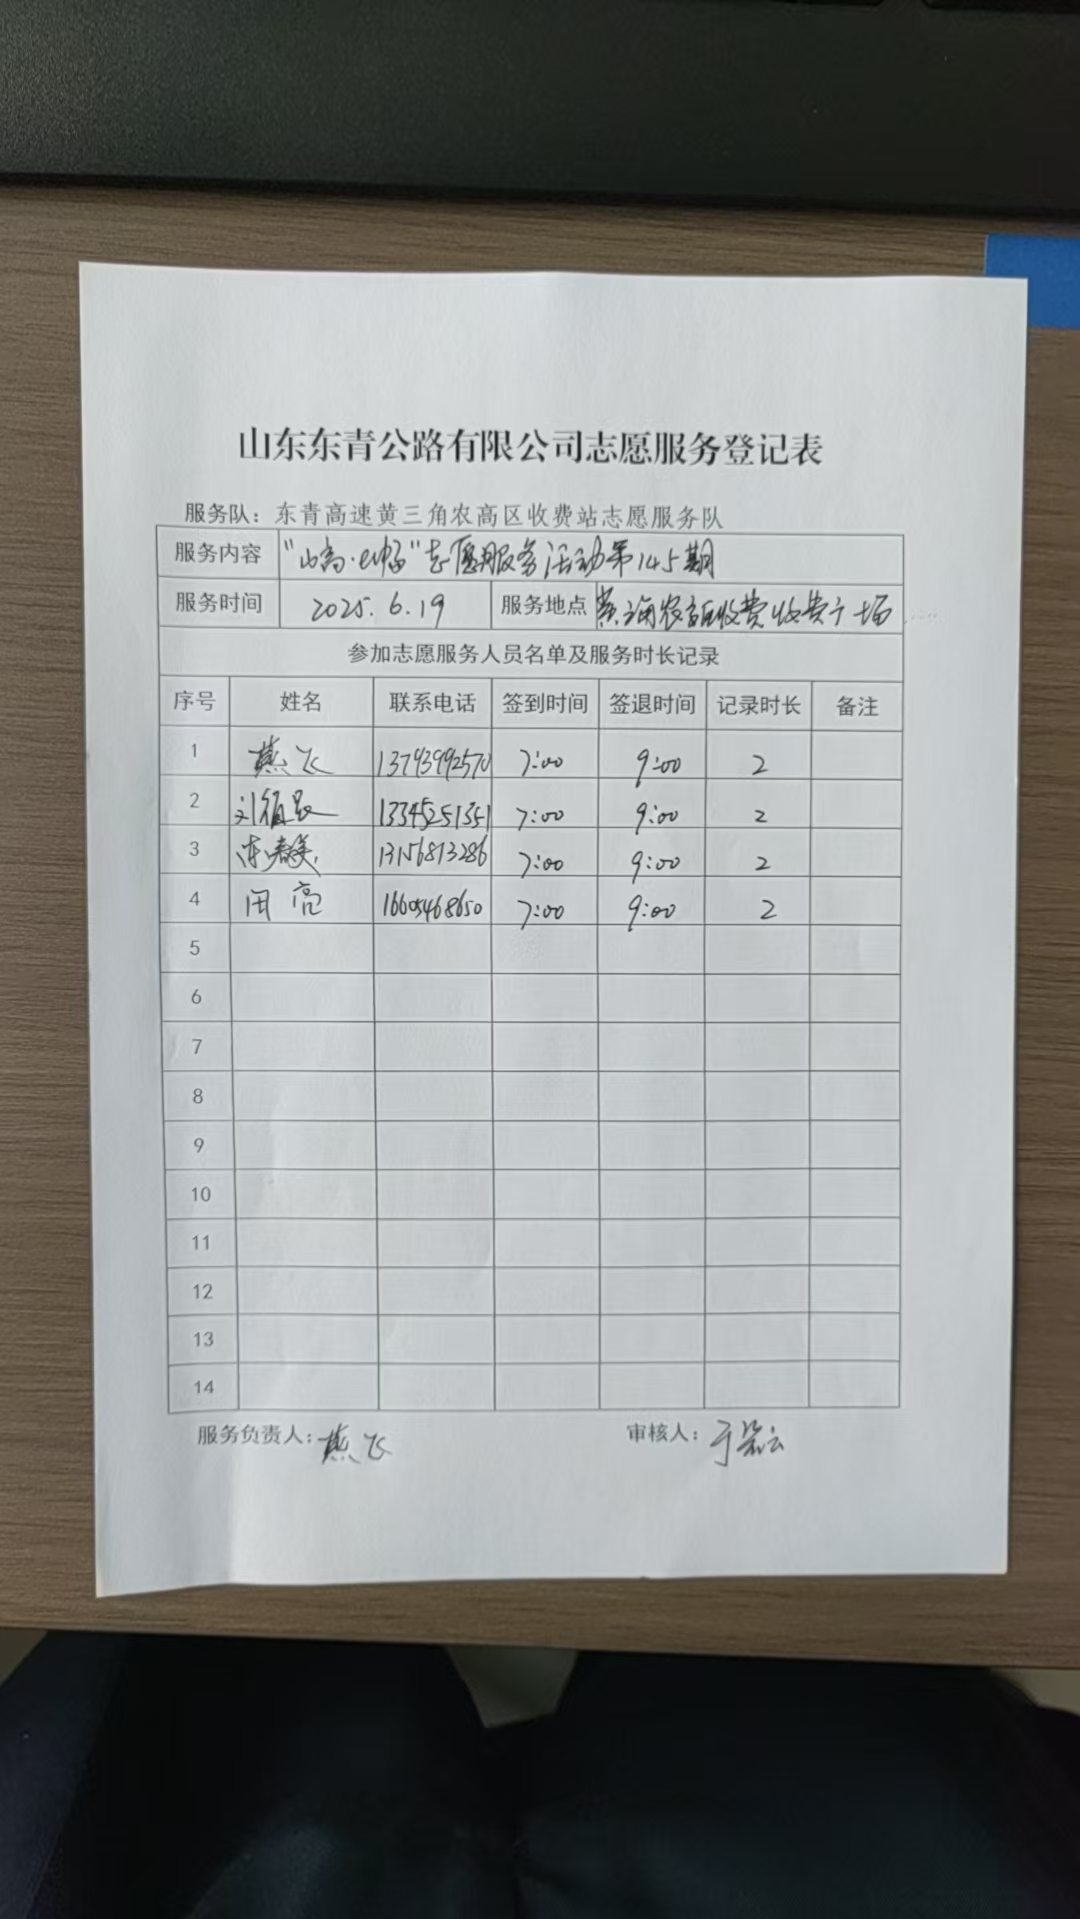 山东东青公路有限公司志愿服务登记表
服务队：东青高速黄三角农高区收费站志愿服务队
服务内容 “山高·e畅”志愿服务活动第145期
服务时间 2025.6.19 服务地点 黄三角农高区收费 收费广场
参加志愿服务人员名单及服务时长记录
序号 姓名 联系电话 签到时间 签退时间 记录时长 备注
1 燕飞 13793992570 7:00 9:00 2
2 13345251351 7:00 9:00 2
3 13156813286 7:00 9:00 2
4 田亮 16605468650 7:00 9:00 2
5
6
7
8
9
10
11
12
13
14
服务负责人：燕飞 审核人：于